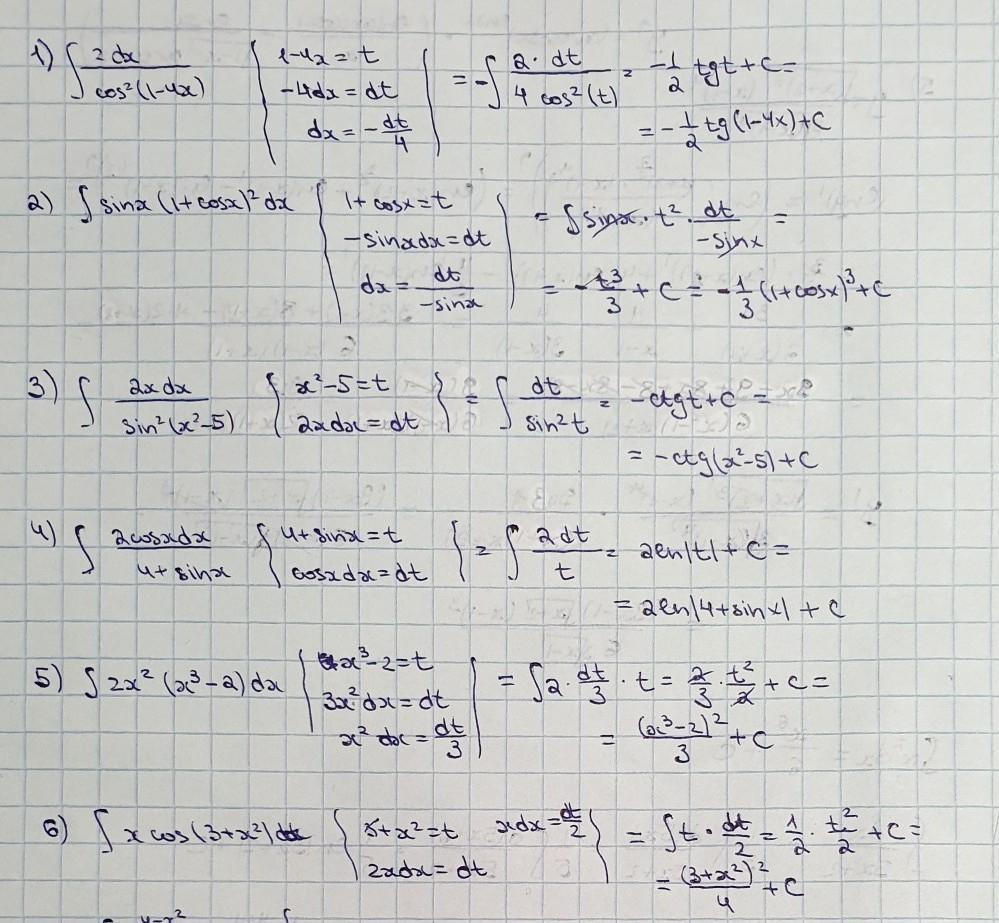 1) ∫ 2dx / cos²(1-4x) { 1-4x = t ; -4dx = dt ; dx = -dt/4 } = -∫ 2·dt / 4 cos²(t) = -1/2 tgt + C =
= -1/2 tg(1-4x) + C
2) ∫ sinx (1+cosx)² dx { 1+cosx = t ; -sinxdx = dt ; dx = dt/-sinx } = ∫ sinx · t² · dt/-sinx =
= -t³/3 + C = -1/3 (1+cosx)³ + C
3) ∫ 2x dx / sin²(x²-5) { x²-5 = t ; 2xdx = dt } = ∫ dt / sin²t = -ctgt + C =
= -ctg(x²-5) + C
4) ∫ 2cosxdx / 4+sinx { 4+sinx = t ; cosxdx = dt } = ∫ 2dt / t = 2ln|t| + C =
= 2ln|4+sinx| + C
5) ∫ 2x² (x³-2) dx { x³-2 = t ; 3x²dx = dt ; x²dx = dt/3 } = ∫ 2 · dt/3 · t = 2/3 · t²/2 + C =
= (x³-2)²/3 + C
6) ∫ x cos(3+x²)dx { 3+x² = t ; xdx = dt/2 ; 2xdx = dt } = ∫ t · dt/2 = 1/2 · t²/2 + C =
= (3+x²)²/4 + C